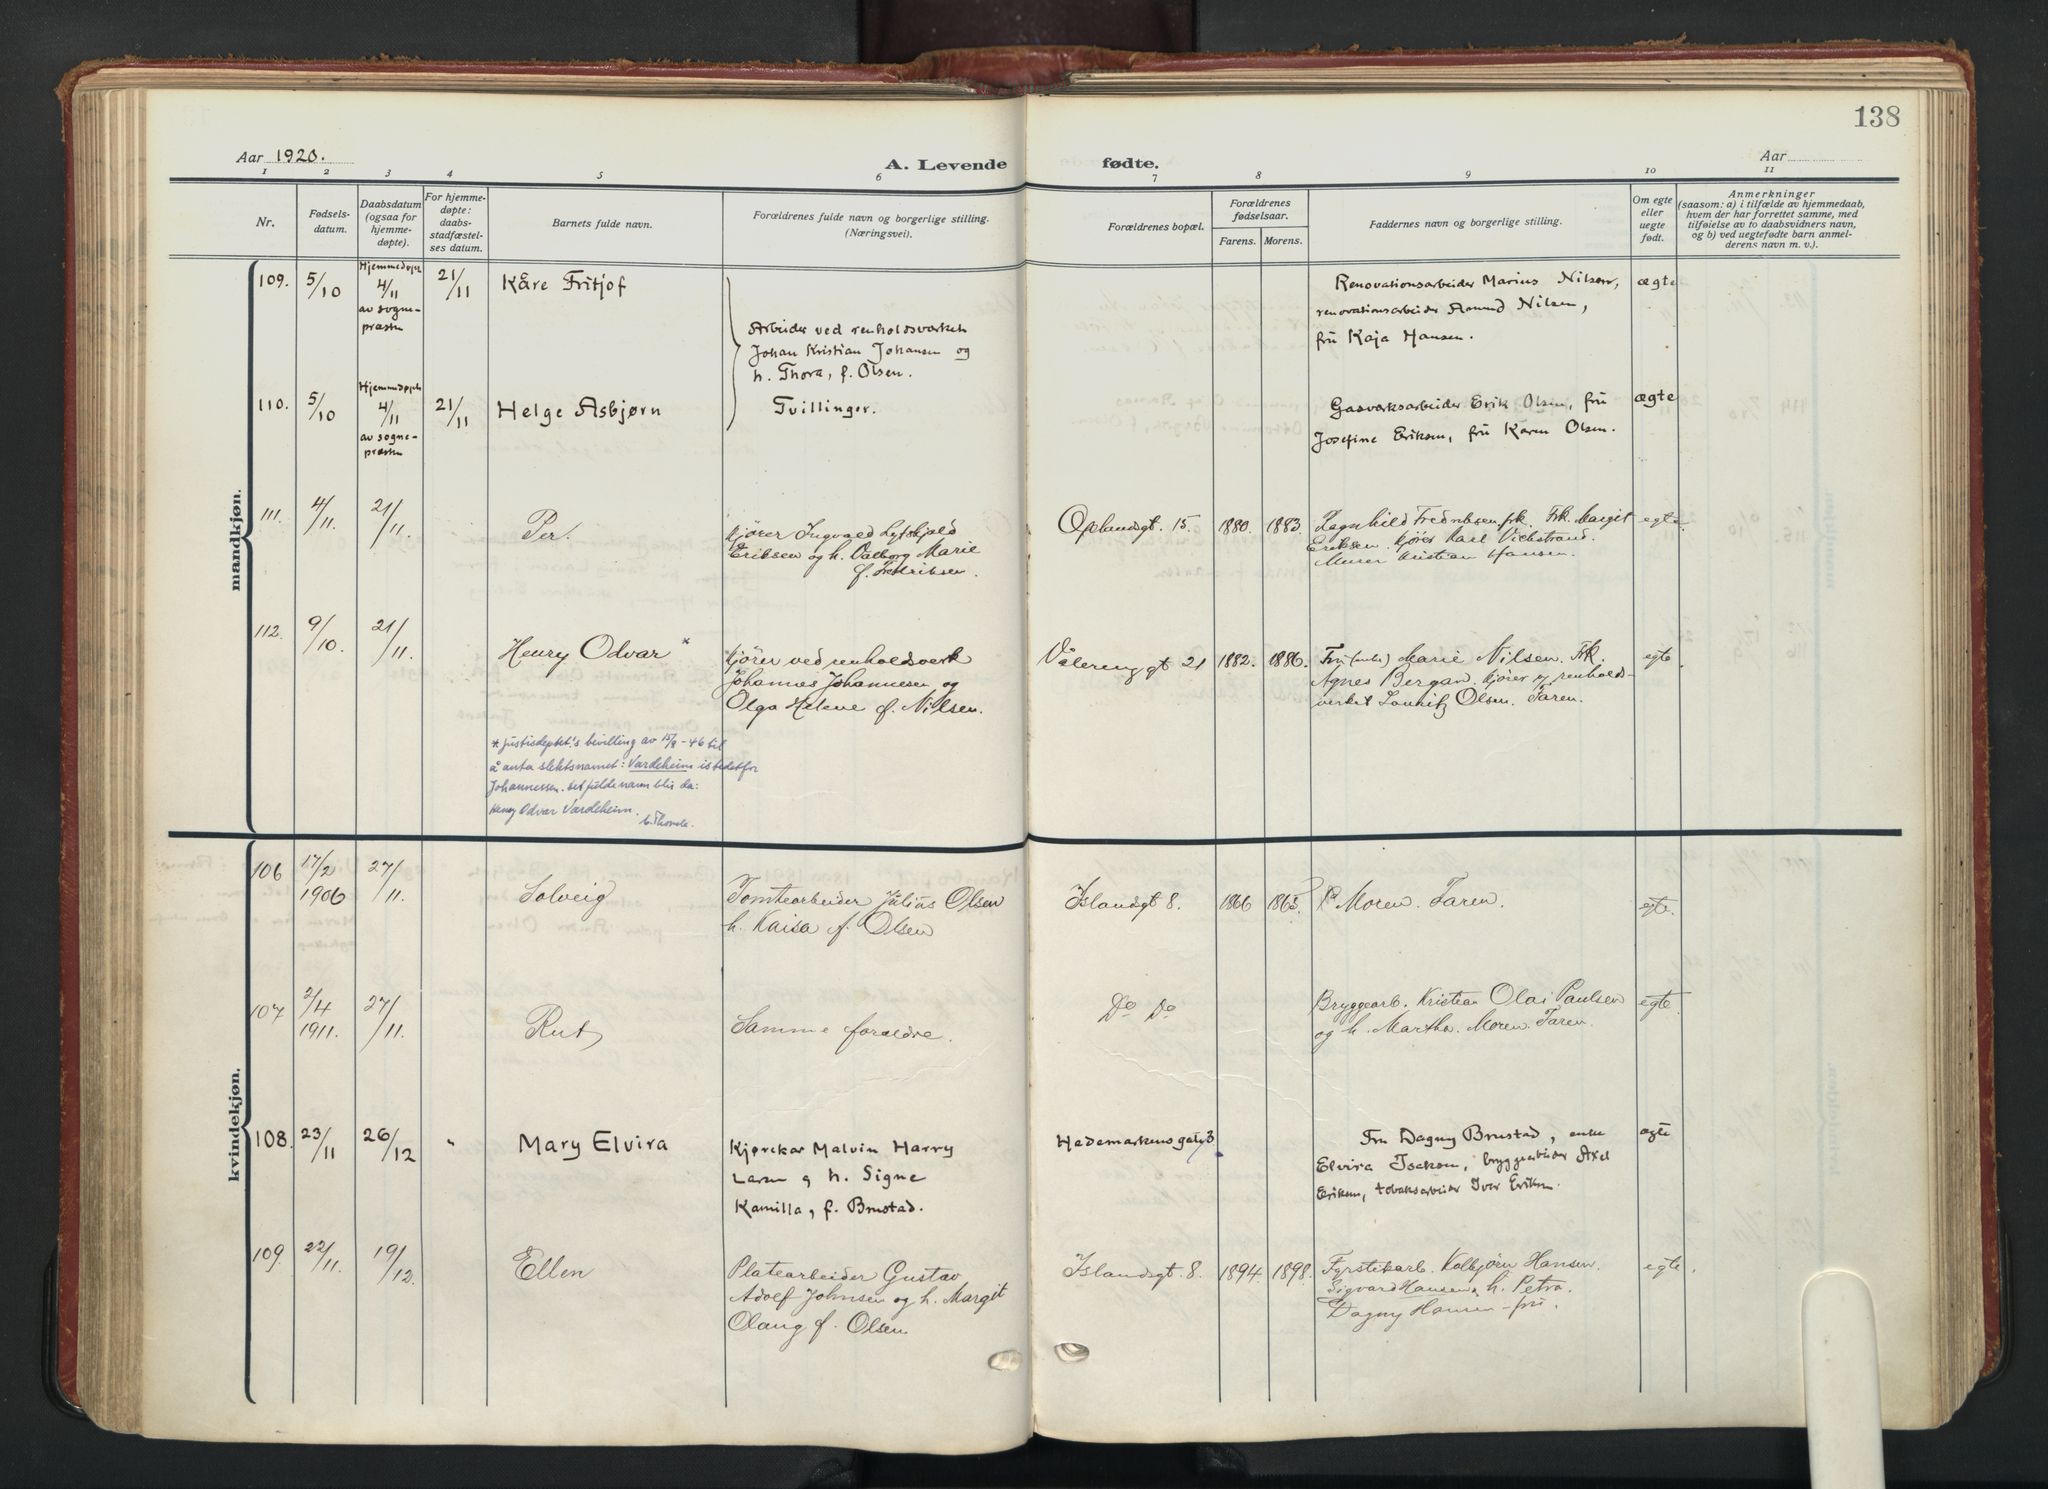 138
Aar 1920.
A. Levende fødte.
Aar
1 2 3 4 5 6 7 8 9 10 11
Nr.
Fødsels-
datum.
Daabsdatum
(ogsaa for
hjemme-
døpte).
For hjemme-
døpte:
daabs-
stadfæstel-
ses datum.
Barnets fulde navn.
Forældrenes fulde navn og borgerlige stilling.
(Næringsvei).
Forældrenes bopæl.
Forældrenes
fødselsaar.
Farens. Morens.
Faddernes navn og borgerlige stilling.
Om egte
eller
uegte
født.
Anmerkninger
(saasom: a) i tilfælde av hjemmedaab,
hvem der har forrettet samme, med
tilføielse av to daabsvidners navn,
og b) ved uegtefødte barn anmel-
derens navn m. v.).
mandkjøn.
109. 5/10
Hjemmedøpt
4/11
av sogne-
præsten
21/11
Kåre Fritjof
Arbeider ved renholdsverket
Johan Kristian Johansen og
h. Thora, f. Olsen.
Renovationsarbeider Marius Nilsen,
renovationsarbeider Amund Nilsen,
fru Kaja Hansen.
ægte
110. 5/10
Hjemmedøpt
4/11
av sogne-
præsten
21/11
Helge Asbjørn
Tvillinger.
Gasverksarbeider Erik Olsen, fru
Josefine Eriksen, fru Karen Olsen.
ægte
111. 4/11. 21/11.
Per.
Kjører Ingvald
Eriksen og h. Valborg Marie
f. Fredriksen.
Oplandsgt. 15. 1880. 1883.
Ragnhild Fredriksen frk. Frk. Margit
Eriksen. Kjører Karl Vickstrand.
Murer Kristian Hansen.
egte.
112. 9/10. 21/11.
Henry Odvar*
Kjører ved renholdsverk
Johannes Johannesen og
Olga Helene f. Nilsen.
Vålereng gt 21 1882. 1886.
Fru (enke) Marie Nilsen. Frk.
Agnes Bergan. Kjører v renholds-
verket Lauritz Olsen. Faren.
egte.
* Justisdeptet's bevilling av 15/8-46 til
å anta slektsnamet: Vardeheim istedetfor
Johannessen. Det fulde navn blir da:
Henry Odvar Vardeheim.
kvindekjøn.
106 17/2
1906 27/11.
Solveig
Tomtearbeider Julius Olsen
h. Kaisa f. Olsen
Islandsgt 8. 1866 1863.
Moren. Faren.
egte.
107 2/4
1911. 27/11.
Rut
Samme foraldre.
Do Do
Bryggearb. Kristian Olai Paulsen
og h. Martha. Moren. Faren.
egte.
108. 23/11 26/12 "
Mary Elvira
Kjørekar Malvin Harry
Larsen og h. Signe
Kamilla, f. Brustad.
Hedemarkens gate 3
Fru Dagny Brustad, enke
Elvira Isaksen, bryggearbeider Axel
Eriksen, tobaksarbeider Iver Eriksen.
ægte
109. 22/11. 19/12.
Ellen
Platearbeider Gustav
Adolf Johnsen og h. Margit
Olaug f. Olsen
Islandsgt. 8. 1894. 1898.
Fyrstikarb. Kolbjørn Hansen.
Sigvard Hansen, h. Petra.
Dagny Hansen - fru.
egte.